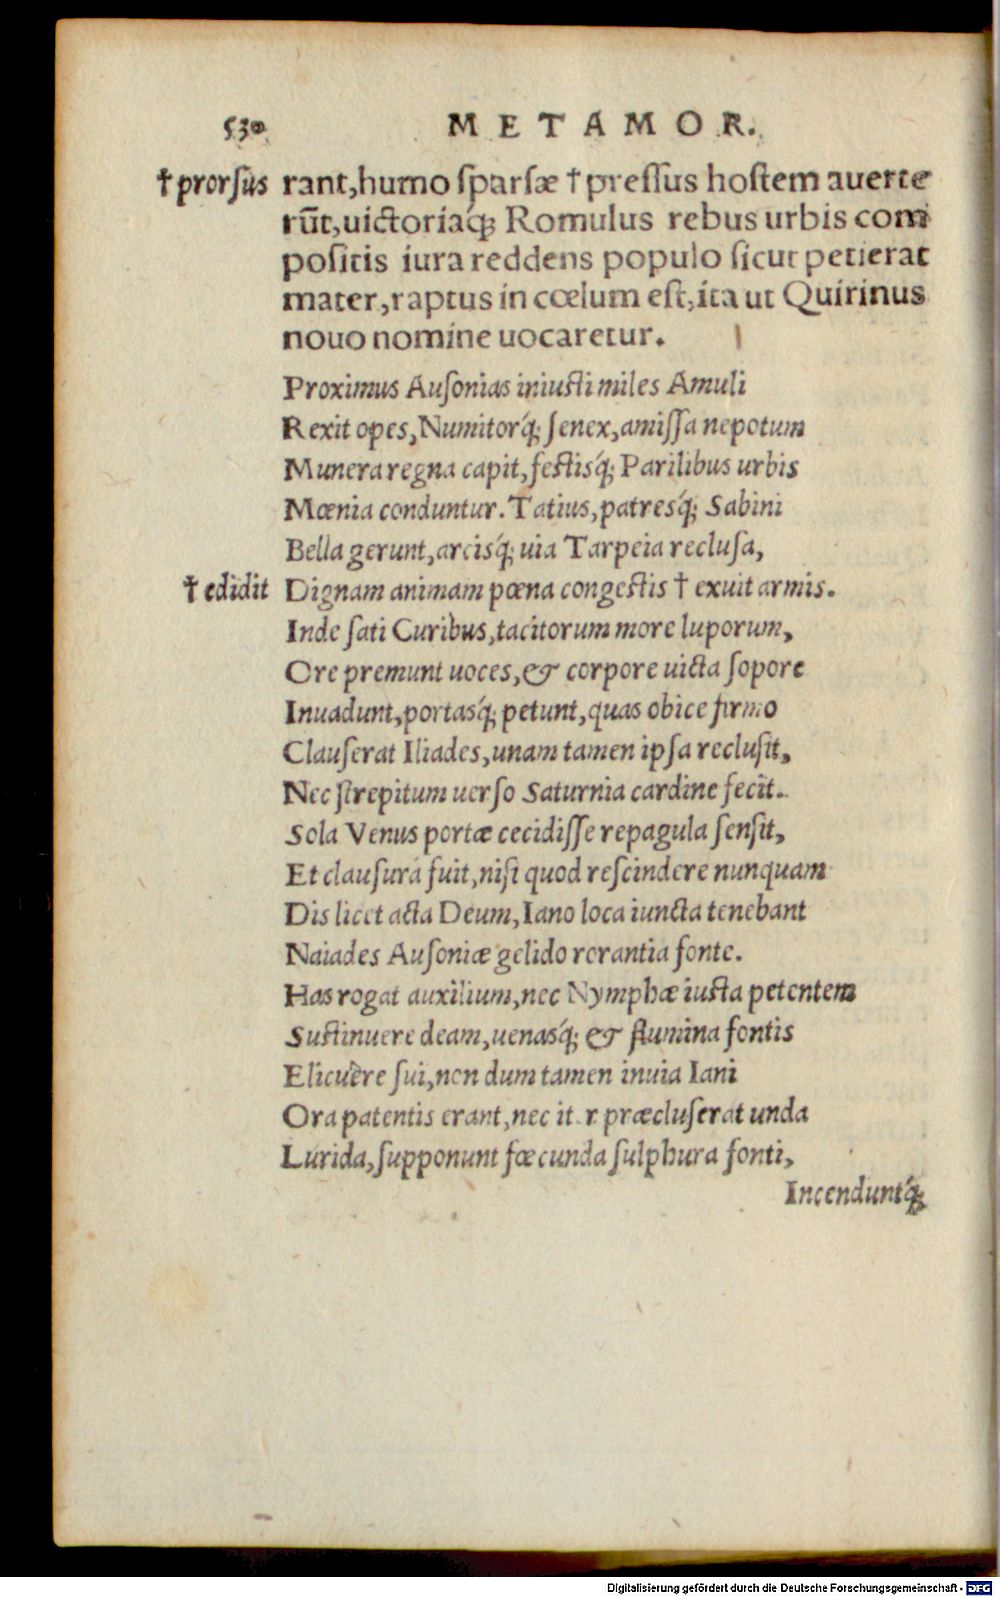 530 METAMOR.
† prorsus rant, humo sparsæ † pressus hostem auerte
rūt, uictoriaq́; Romulus rebus urbis com
positis iura reddens populo sicut petierat
mater, raptus in cœlum est, ita ut Quirinus
nouo nomine uocaretur.
Proximus Ausonias iniusti miles Amuli
Rexit opes, Numitorq́; senex, amissa nepotum
Munera regna capit, festisq́; Parilibus urbis
Mœnia conduntur. Tatius, patresq́; Sabini
Bella gerunt, arcisq́; uia Tarpeia reclusa,
† edidit Dignam animam pœna congestis † exuit armis.
Inde sati Curibus, tacitorum more luporum,
Ore premunt uoces, & corpore uicta sopore
Inuadunt, portasq́; petunt, quas obice firmo
Clauserat Iliades, unam tamen ipsa reclusit,
Nec strepitum uerso Saturnia cardine fecit.
Sola Venus portæ cecidisse repagula sensit,
Et clausura fuit, nisi quod rescindere nunquam
Dis licet acta Deum, Iano loca iuncta tenebant
Naiades Ausoniæ gelido rorantia fonte.
Has rogat auxilium, nec Nymphæ iusta petentem
Sustinuere deam, uenasq́; & flumina fontis
Elicuere sui, non dum tamen inuia Iani
Ora patentis erant, nec iter præcluserat unda
Lurida, supponunt fœcunda sulphura fonti,
Incenduntq́;
Digitalisierung gefördert durch die Deutsche Forschungsgemeinschaft - DFG